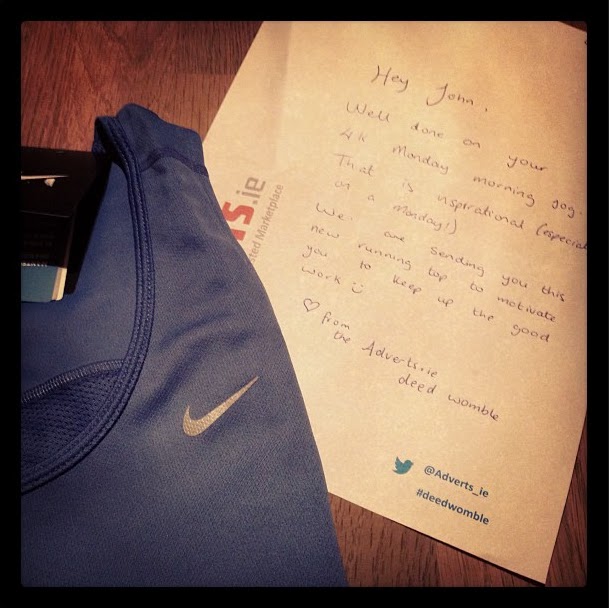 Hey John,
Well done on your
4k Monday morning jog.
That is inspirational (especial
on a Monday!)
We are sending you this
new running top to motivate
you to keep up the good
work
♡ from
the Adverts.ie
deed womble
s.ie
sted Marketplace
@Adverts_ie
#deedwomble